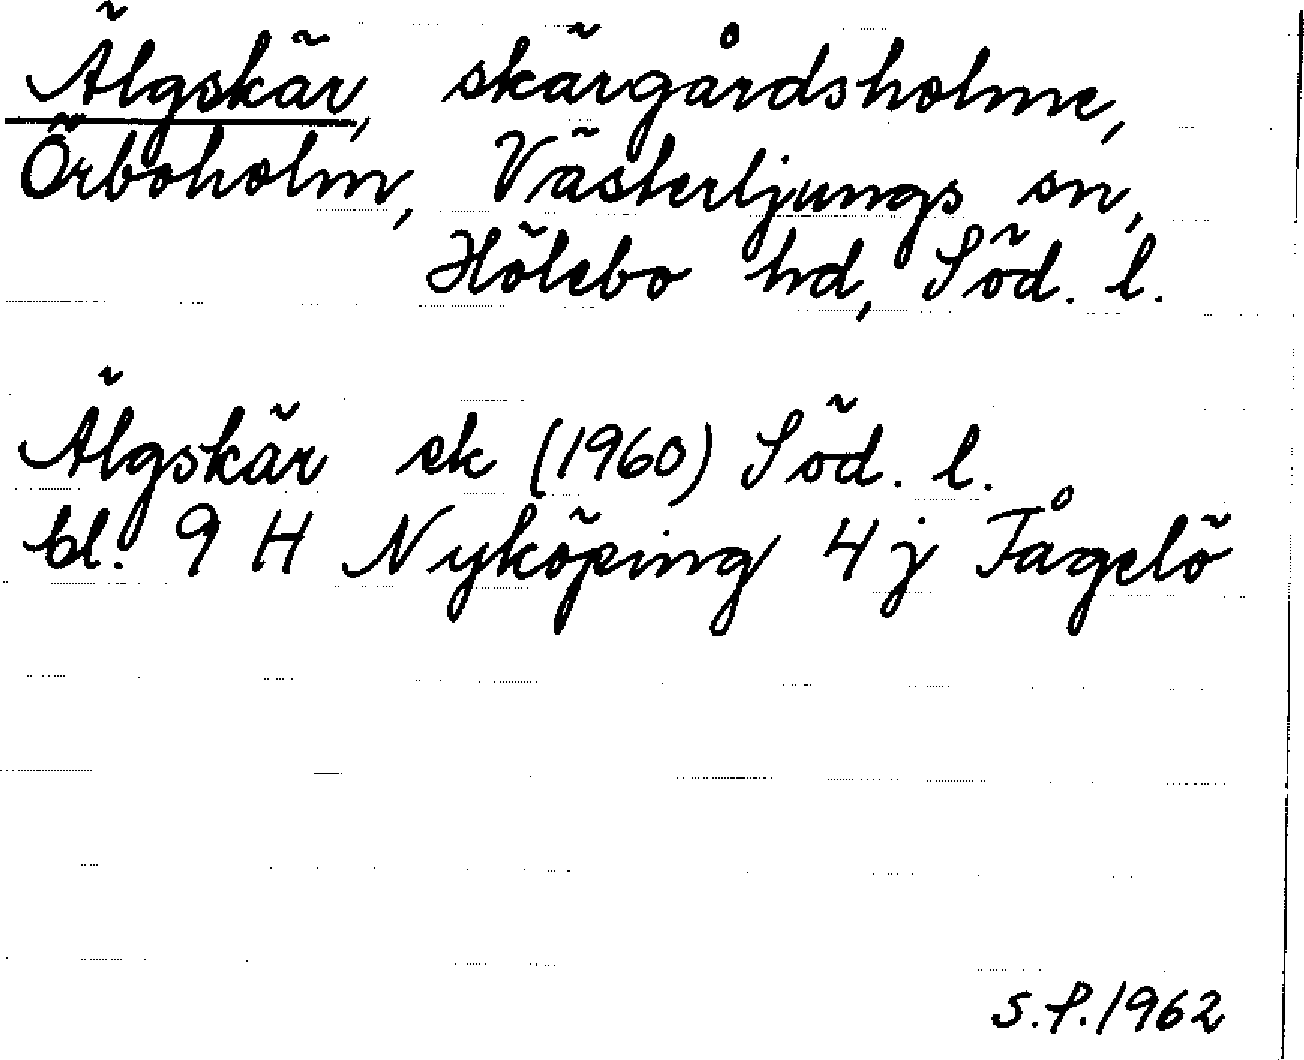 Älgskär, skärgårdsholme,
Örboholm, Västerljungs sn,
Hölebo hd, Söd. l.
Älgskär ek (1960) Söd. l.
bl. 9 H Nyköping 4 j Fågelö
S.P. 1962